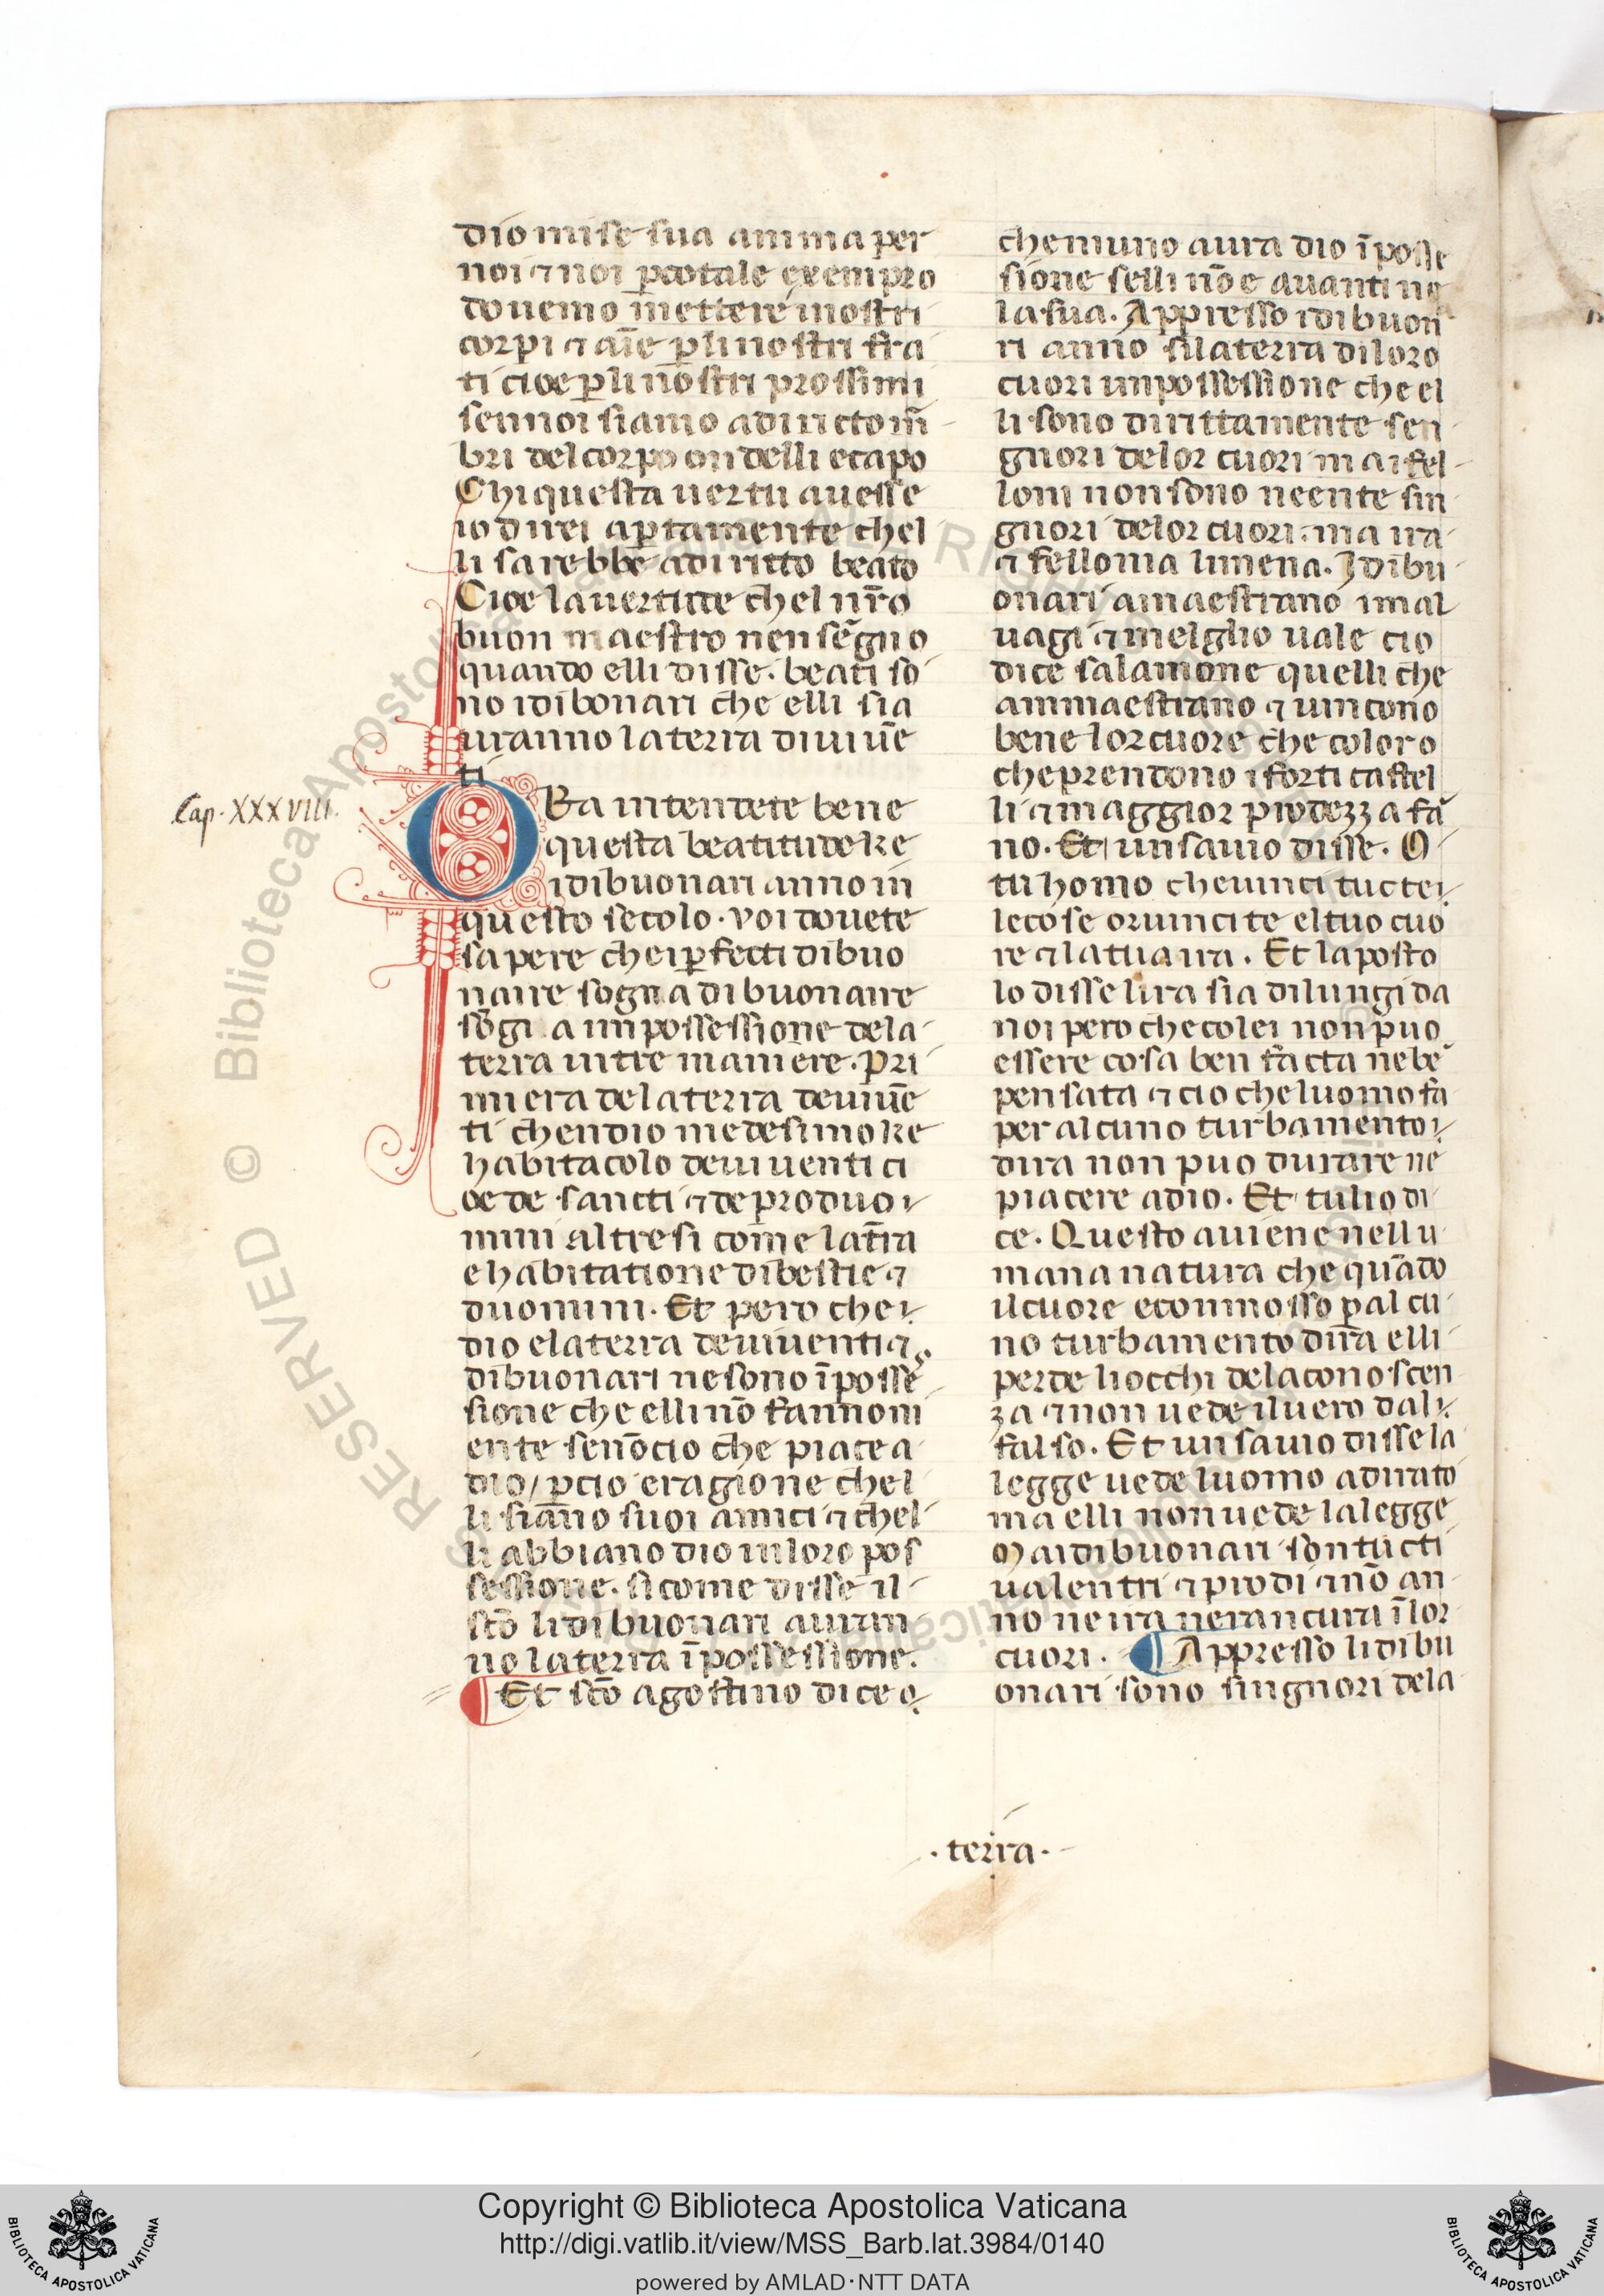 dio mise sua anima per
noi ⁊ noi p̱ cotale exempro
douemo mettere i nostri
corpi ⁊ aīe p̱ li nostri fra
ti cioe p̱ li nostri prossimi
sennoi siamo adiricto m̄
bri del corpo ondelli e capo
Chi questa uertu auesse
io direi ap̱tamente chel
li sarebbe adiritto beato
Cioe la uertude chel nr̄o
buon maestro nensegno
quando elli disse. beati so
no i dibonari che elli sia
uranno la terra di uiuē
ti
Cap. XXXVIII.
ORa intendete bene
questa beatitude ke
i dibuonari anno in
questo secolo. voi douete
sapere che i p̱fecti dibuo
naire sogna dibuonaire
sogi a inpossessione de la
terra in tre maniere. Pri
miera de la terra de uiuē
ti chen dio medesimo ke
habitacolo de uiuenti ci
oe de sancti ⁊ de produo
mini altresi come la tr̄ra
e habitatione di bestie ⁊
duomini. Et pero che
dio e la terra de uiuenti ⁊
dibuonari ne sono ī posse
sione che elli nō fanno ni
ente se nō cio che piace a
dio / p̱cio e ragione chel
li siano suoi amici ⁊ chel
li abbiano dio in loro pos
sessione. si come disse il
sc̄o li dibuonari auran
no la terra ī possessione.
Et sc̄o agostino dice
che niuno aura dio ī posse
sione selli nō e auanti ne
la sua. Appresso i dibuon
ri anno su la terra di loro
cuori inpossessione che el
li sono dirittamente sen
gnori de lor cuori ma i fel
loni non sono neente sin
gnori de lor cuori: ma ira
⁊ fellonia li mena. I dibu
onari amaestrano i mal
uagi ⁊ melglio uale cio
dice salamone quelli che
ammaestrano ⁊ uincono
bene lor cuore che coloro
che prendono i forti castel
li ⁊ maggior prodezza fā
no. Et un sauio disse. O
tu homo che uinci tucte
le cose or uinci te el tuo cuo
re ⁊ la tua ira. Et laposto
lo disse lira sia di lungi da
noi pero che colei non puo
essere cosa ben facta ne bē
pensata ⁊ cio che luomo fa
per alcuno turbamento
dira non puo durare ne
piacere a dio. Et tulio di
ce. Questo auiene nellu
mana natura che quādo
il cuore e commosso p̱ alcu
no turbamento dira elli
perde li occhi de la conoscen
za ⁊ non uede il uero dal
falso. Et un sauio disse la
legge uede luomo adirato
ma elli non uede la legge
Mai dibuonari son tucti
ualentri ⁊ prodi ⁊ nō an
no ne ira ne rancura ī lor
cuori. Appresso li dibu
onari sono singnori de la
.terra.
Copyright © Biblioteca Apostolica Vaticana
http://digi.vatlib.it/view/MSS_Barb.lat.3984/0140
powered by AMLAD·NTT DATA
BIBLIOTECA APOSTOLICA VATICANA
BIBLIOTECA APOSTOLICA VATICANA